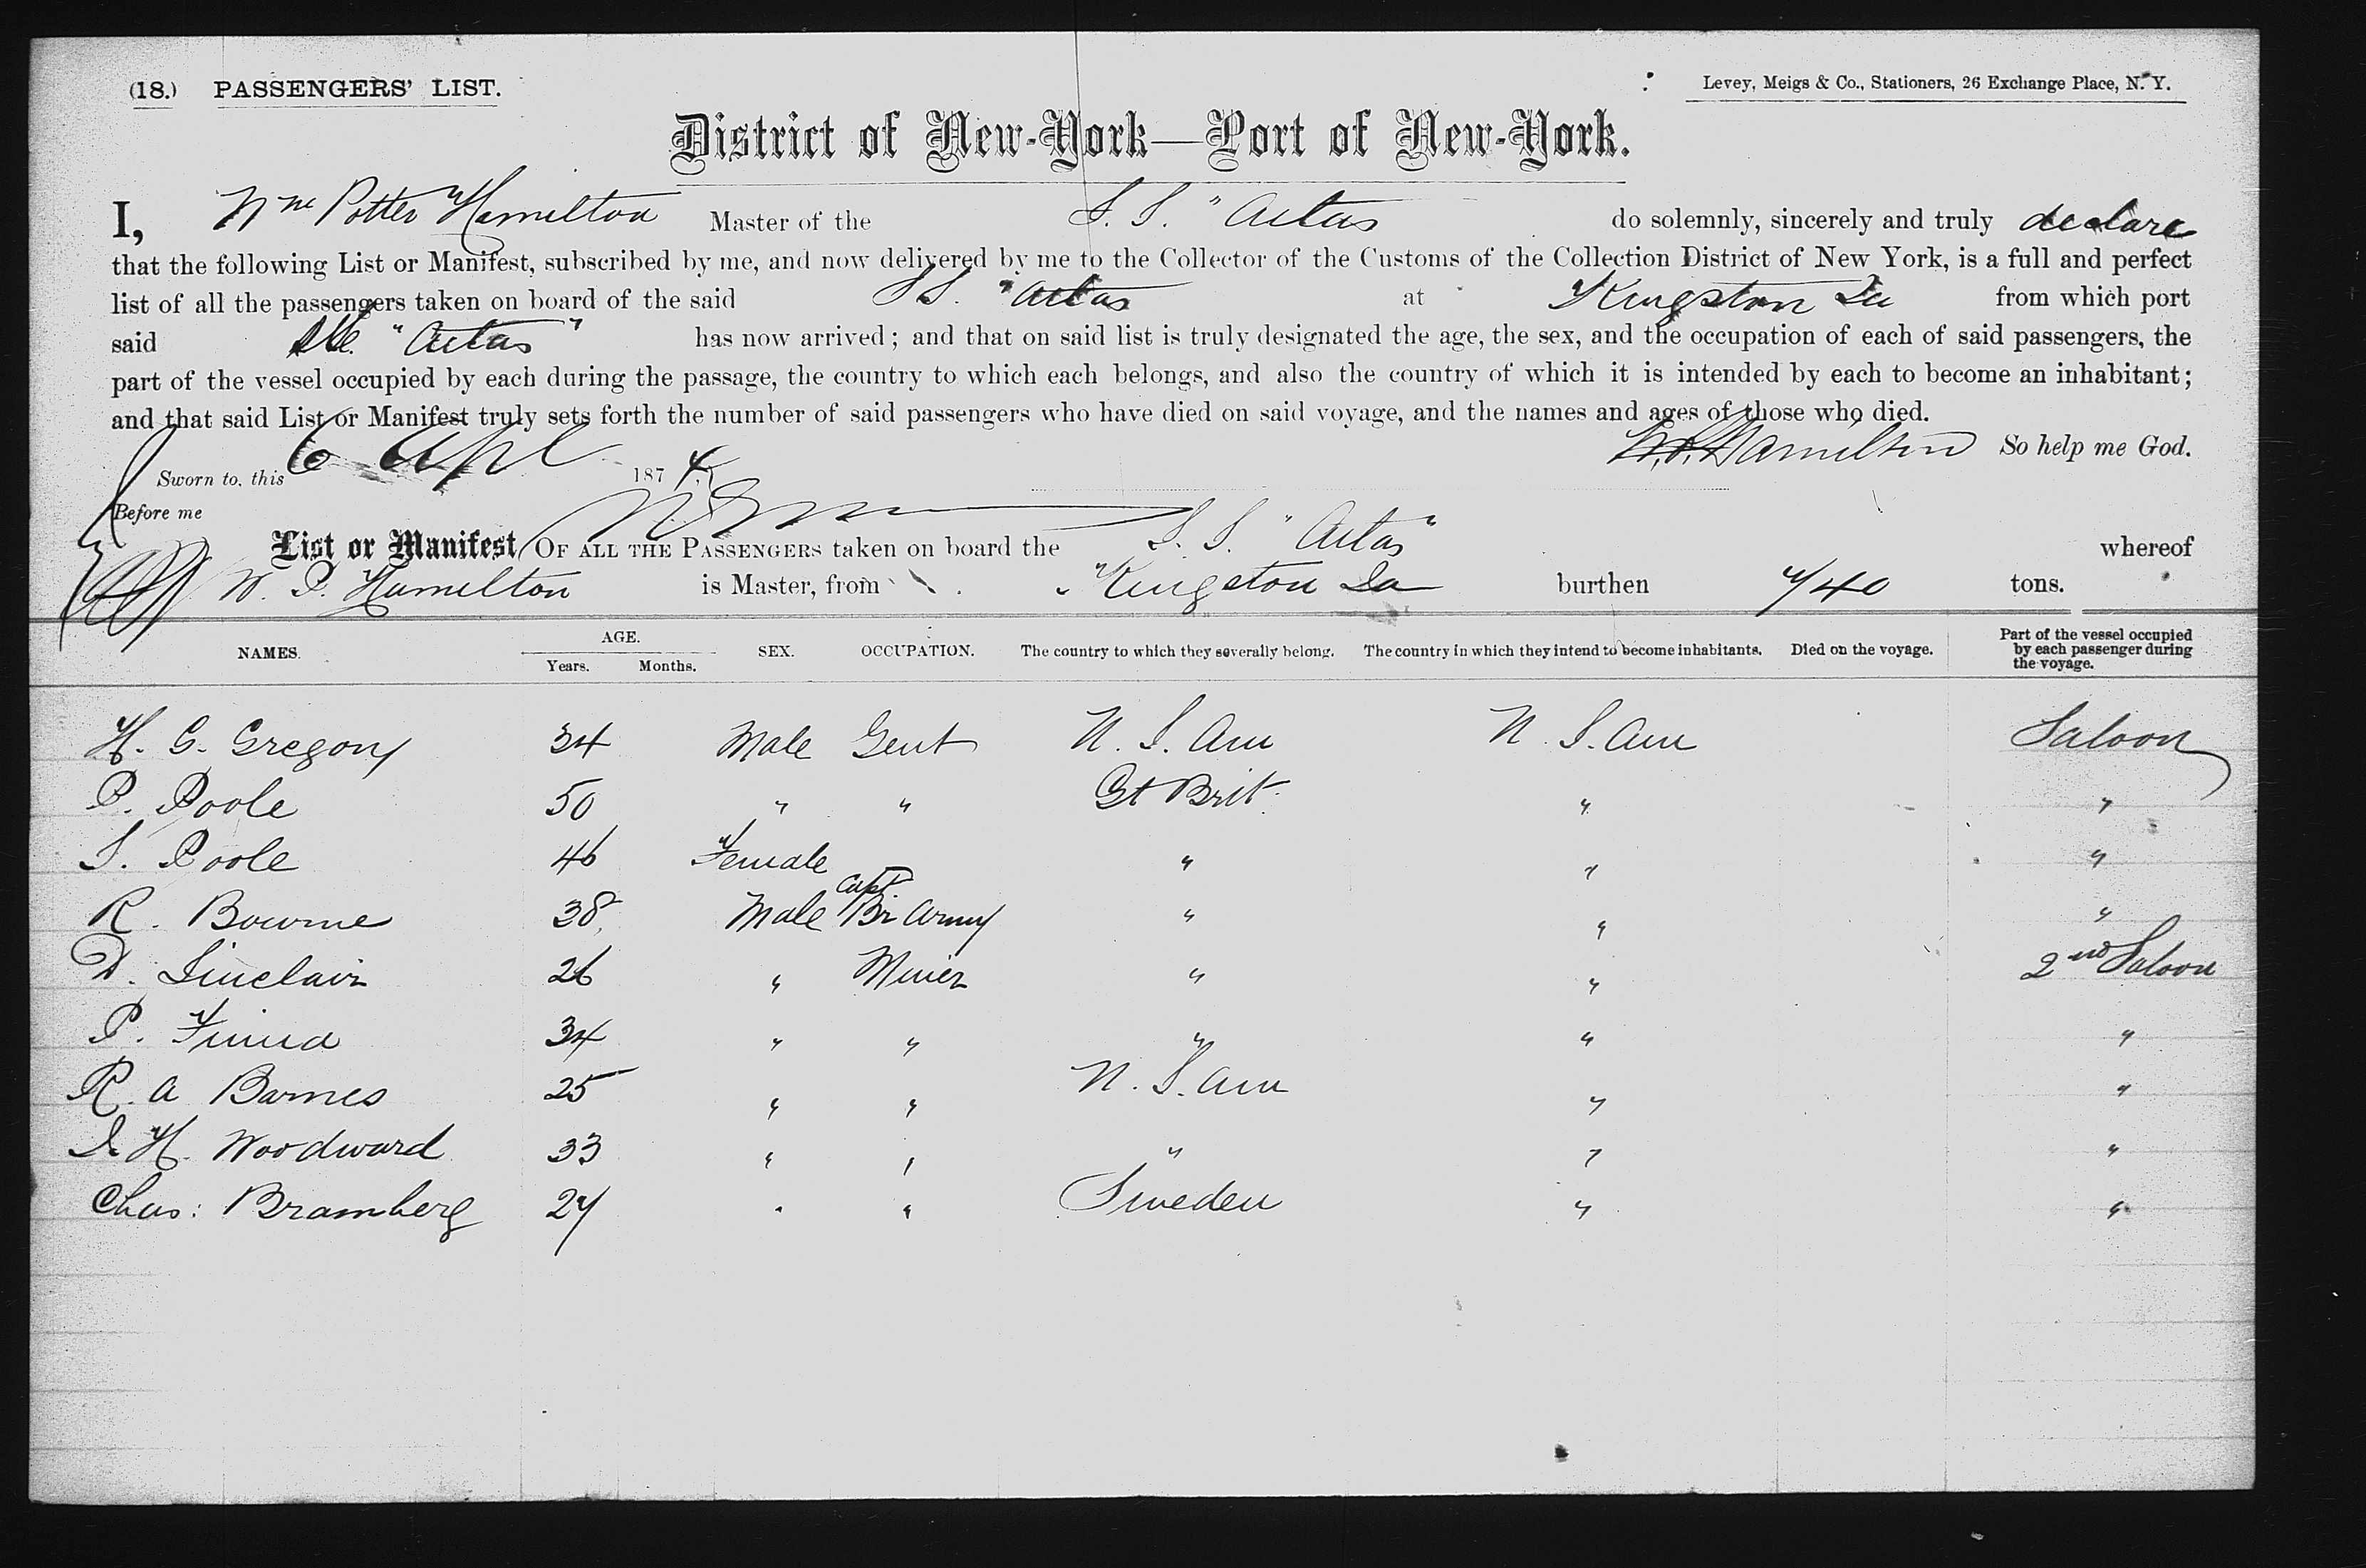 (18.) PASSENGERS' LIST. Levey, Meigs & Co., Stationers, 26 Exchange Place, N. Y.
District of New-York—Port of New-York.
I, Wm Potter Hamilton Master of the S. S. "Aetas do solemnly, sincerely and truly declare
that the following List or Manifest, subscribed by me, and now delivered by me to the Collector of the Customs of the Collection District of New York, is a full and perfect
list of all the passengers taken on board of the said SS. "Aetas at Kingston Ja from which port
said "Aetas" has now arrived; and that on said list is truly designated the age, the sex, and the occupation of each of said passengers, the
part of the vessel occupied by each during the passage, the country to which each belongs, and also the country of which it is intended by each to become an inhabitant;
and that said List or Manifest truly sets forth the number of said passengers who have died on said voyage, and the names and ages of those who died.
W.P. Hamilton So help me God.
Sworn to, this 6 Apl 1874
Before me
List or Manifest OF ALL THE PASSENGERS taken on board the S. S. "Aetas" whereof
W. P. Hamilton is Master, from Kingston Ja burthen 740 tons.
NAMES. AGE. Years. Months. SEX. OCCUPATION. The country to which they severally belong. The country in which they intend to become inhabitants. Died on the voyage. Part of the vessel occupied by each passenger during the voyage.
H. G. Gregory 34 Male Gent U. S. Am U. S. Am Saloon
P. Poole 50 " " Gt Brit. " "
S. Poole 46 Female " " "
R. Bourne 38 Male Capt Br Army " " "
D. Sinclair 26 " Miner " " 2nd Saloon
P. 34 " " " " "
R. A Barnes 25 " " U. S. Am " "
H. Woodward 33 " " " " "
Chas: Bramberg 27 " " Sweden " "